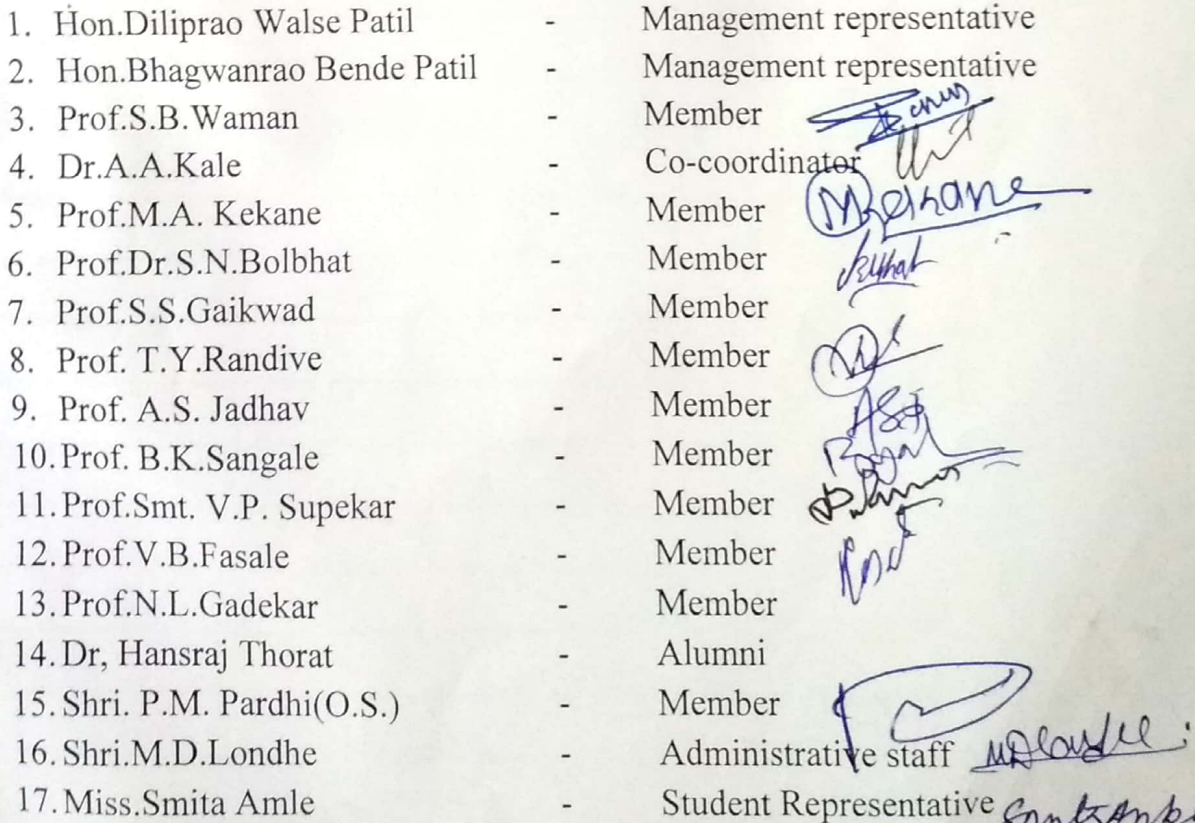 1. Hon.Diliprao Walse Patil - Management representative
2. Hon.Bhagwanrao Bende Patil - Management representative
3. Prof.S.B.Waman - Member
4. Dr.A.A.Kale - Co-coordinator
5. Prof.M.A. Kekane - Member Mkekane
6. Prof.Dr.S.N.Bolbhat - Member
7. Prof.S.S.Gaikwad - Member
8. Prof. T.Y.Randive - Member
9. Prof. A.S. Jadhav - Member
10. Prof. B.K.Sangale - Member
11. Prof.Smt. V.P. Supekar - Member
12. Prof.V.B.Fasale - Member
13. Prof.N.L.Gadekar - Member
14. Dr, Hansraj Thorat - Alumni
15. Shri. P.M. Pardhi(O.S.) - Member
16. Shri.M.D.Londhe - Administrative staff
17. Miss.Smita Amle - Student Representative